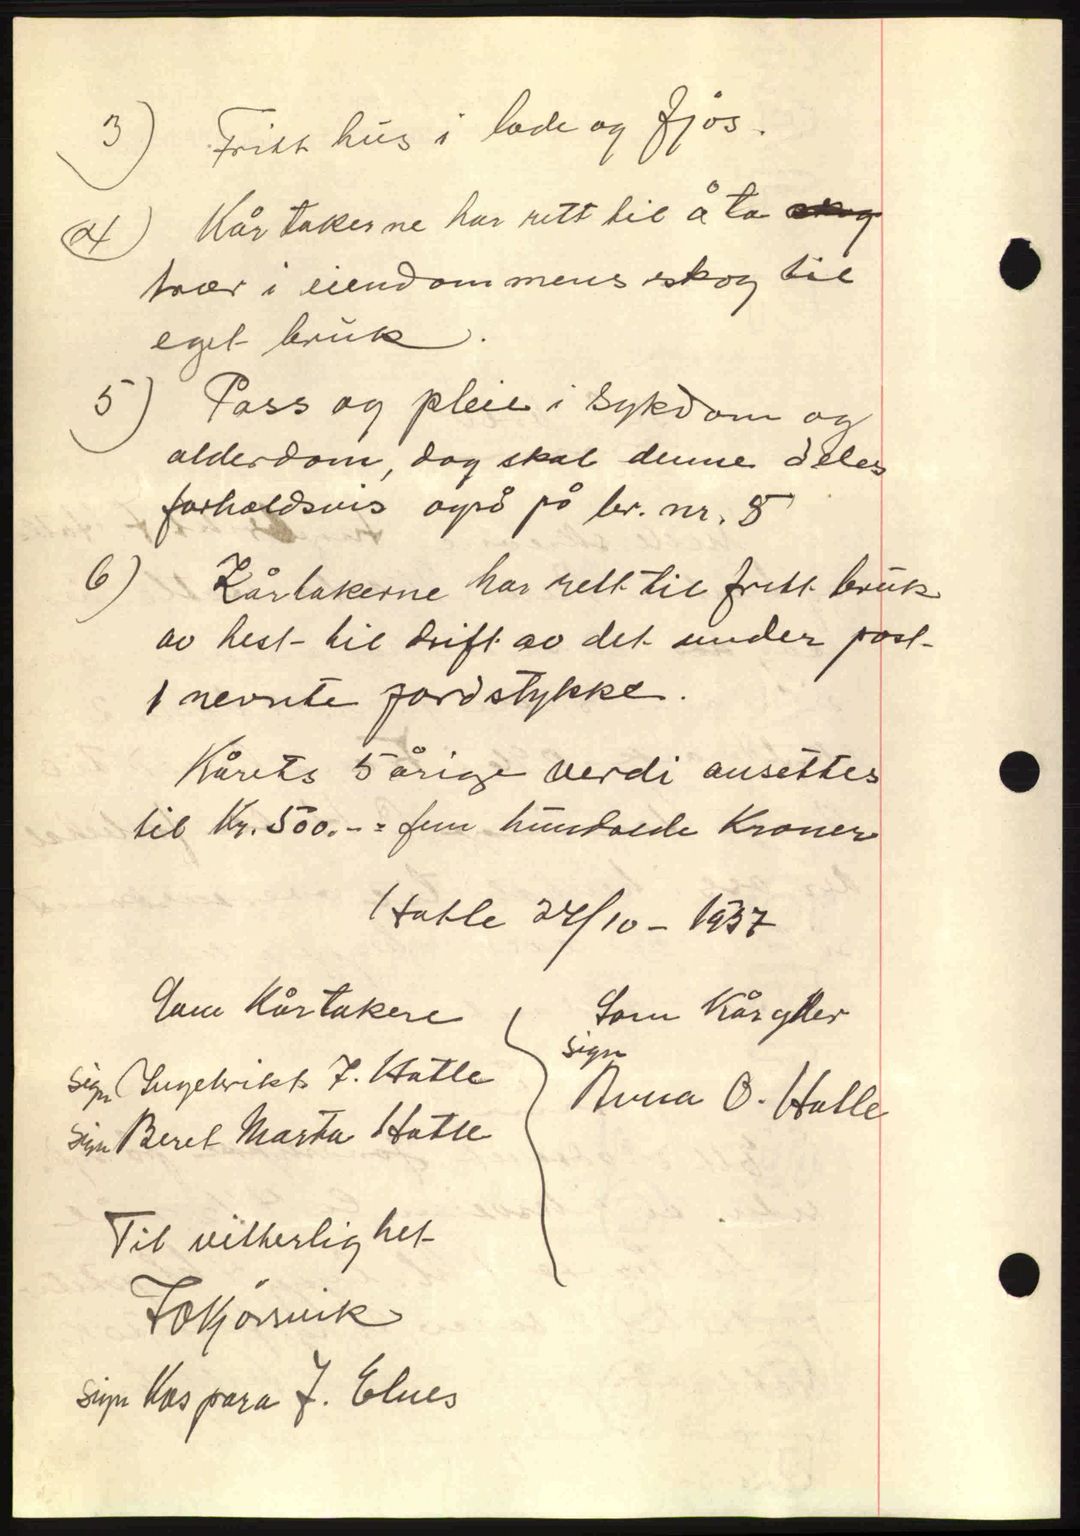 3) Fritt hus i lade og fjøs.
4) Kårtakerne har rett til å ta skog
trær i eiendommens skog til
eget bruk.
5) Pass og pleie i sykdom og
alderdom, dog skal denne deles
forholdsvis også på br. nr. 8
6) Kårtakerne har rett til fritt bruk
av hest til drift av det under post
1 nevnte jordstykke.
Kårets 5 årige verdi ansettes
til Kr. 500.-= fem hundrede Kroner
Hatle 24/10 - 1937
Som Kårtakere
sign Ingebrikt J. Hatle
sign Beret Marta Hatle
Som Kårgiver
sign
Anna O. Hatle
Til vitterlighet
sign Kaspara J. Elnes